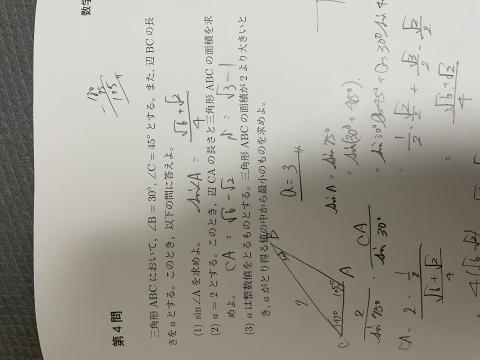 数学
第4問
三角形ABCにおいて，∠B = 30°, ∠C = 45° とする。また，辺BCの長
さをaとする。このとき，以下の問に答えよ。
(1) sin∠Aを求めよ。 sin∠A = (√6+√2)/4
(2) a = 2とする。このとき，辺CAの長さと三角形ABCの面積を求
めよ。 CA = √6 − √2 √3 − 1
(3) aは整数値をとるものとする。三角形ABCの面積が2より大きいと
き，aがとり得る値の中から最小のものを求めよ。
a = 3
2
B
C
A
sin A = sin 75°
= sin(30° + 45°)
= sin30° cos45° + cos30° sin4
= 1/2 · √2/2 + √3/2 · √2/2
= (√6+√2)/4
2/sin 75° = CA/sin 30°
CA = 2 · 1/2
(√6+√2)/4
4(√6−√2)